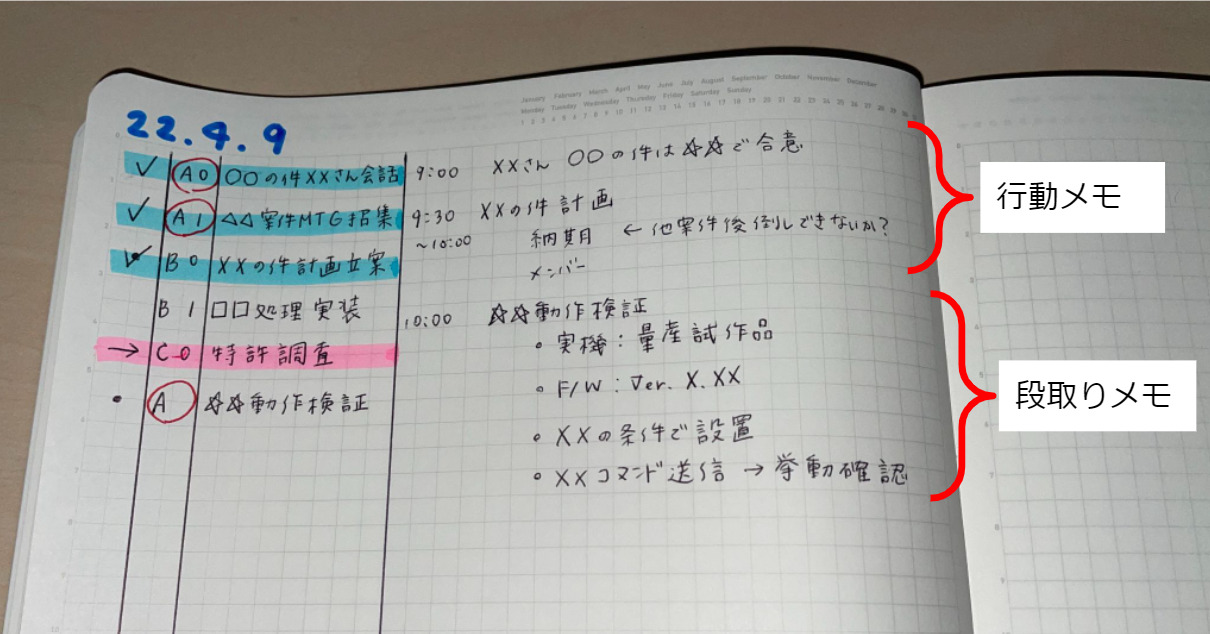 January February March April May June July August September October November December
Monday Tuesday Wednesday Thursday Friday Saturday Sunday
1 2 3 4 5 6 7 8 9 10 11 12 13 14 15 16 17 18 19 20 21 22 23 24 25 26 27 28 29 30 31
22.4.9
✓ A0 〇〇の件××さん会話 9:00 ××さん 〇〇の件は☆☆で合意
✓ A1 △△案件MTG招集 9:30 ××の件計画
~10:00 納期 ← 他案件後倒しできないか?
✓ B0 ××の件計画立案 メンバー
B1 □□処理実装 10:00 ☆☆動作検証
・実機:量産試作品
→ C0 特許調査
・F/W:Ver.X.XX
・ A ☆☆動作検証
・××の条件で設置
・××コマンド送信 → 挙動確認
行動メモ
段取りメモ